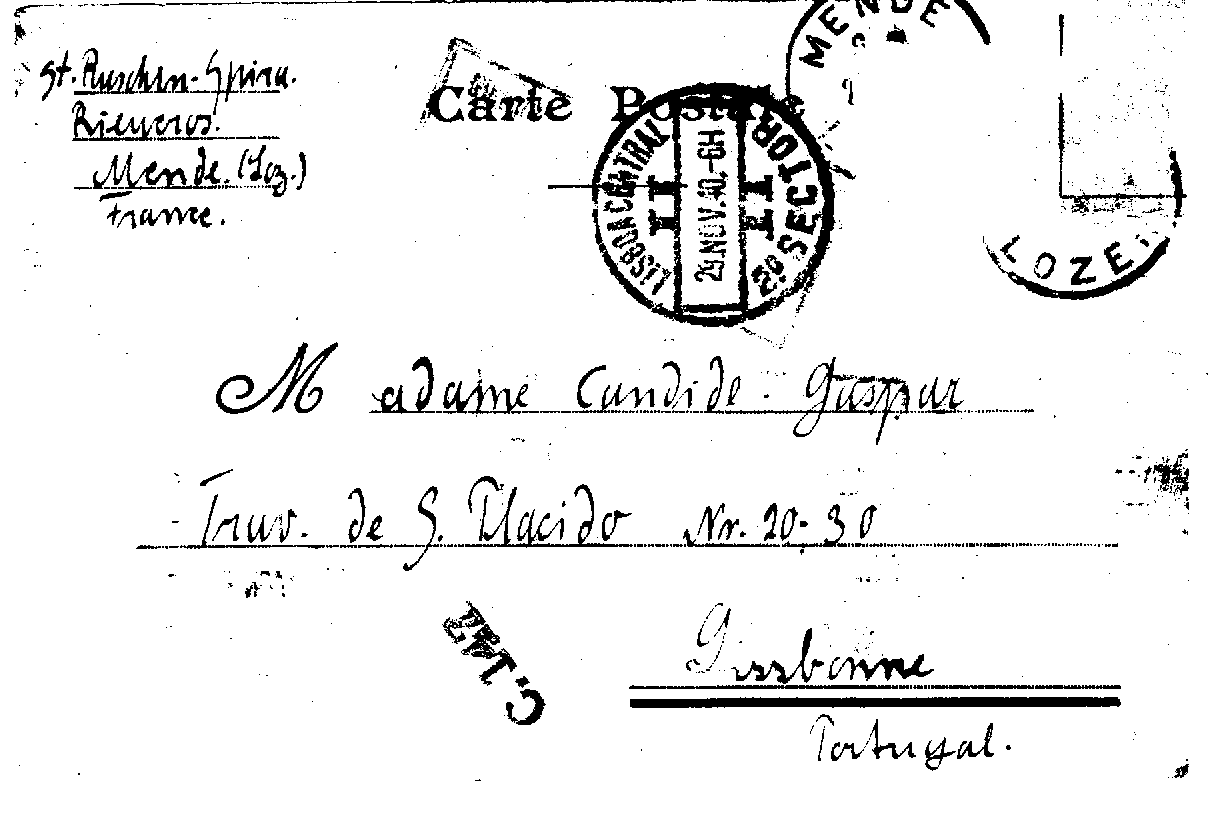 St. Ruschen-Spira.
Rieucros.
Mende. (Loz.)
France.
Carte Postale
MENDE
LOZE
LISBOA CENTRAL
29.NOV.40.-6H
2º SECTOR
Madame Candide. Gaspar
Trav. de S. Placido Nr. 20-30
C.147
Lissbonne
Portugal.